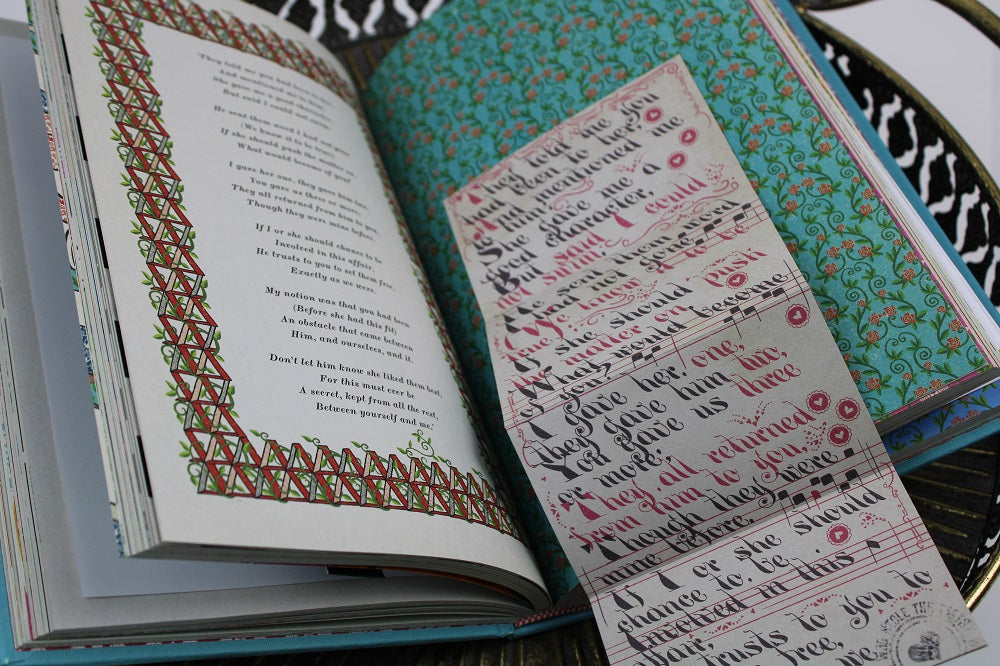 'They told me you had been to her,
And mentioned me to him:
She gave me a good character,
But said I could not swim.
He sent them word I had not gone
(We know it to be true):
If she should push the matter on,
What would become of you?
I gave her one, they gave him two,
You gave us three or more;
They all returned from him to you,
Though they were mine before.
If I or she should chance to be
Involved in this affair,
He trusts to you to set them free,
Exactly as we were.
My notion was that you had been
(Before she had this fit)
An obstacle that came between
Him, and ourselves, and it.
Don't let him know she liked them best,
For this must ever be
A secret, kept from all the rest,
Between yourself and me.'
They told me you
had been to her,
And mentioned me
to him:
She gave me a
good character,
But said I could
not swim.
He sent them word
I had not gone
(We know it to be
true):
If she should push
the matter on,
What would become
of you?
I gave her one,
they gave him two,
You gave us three
or more;
They all returned
from him to you,
Though they were
mine before.
If I or she should
chance to be
Involved in this
affair,
trusts to you to
free,
STOLE THE